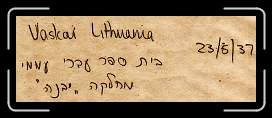 Vaskai Lithuania
23/5/37
בית ספר עברי עממי
מחלקה "יבנה"